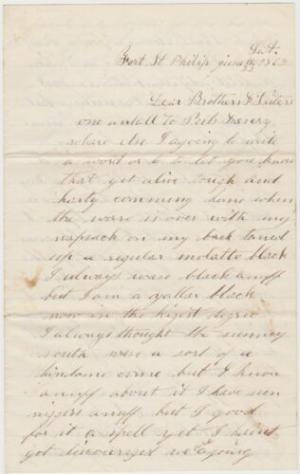 Sat.
Fort St Philip june 1862
Dear Brothers & Sisters
one an all To
where else I agoing to write
a word or to let you know
that yet alive tough and
harty comming home when
the ware is over with my
napsack on my back taned
up a regular molatto black
I always ware black anuff
but I am a yallar black
now in the
I always thought the sunney
south ware a sort of a
but I know
anuff about it I have seen
nigers anuff but I good
for it a spell yet I haint
got discouraged no agoing